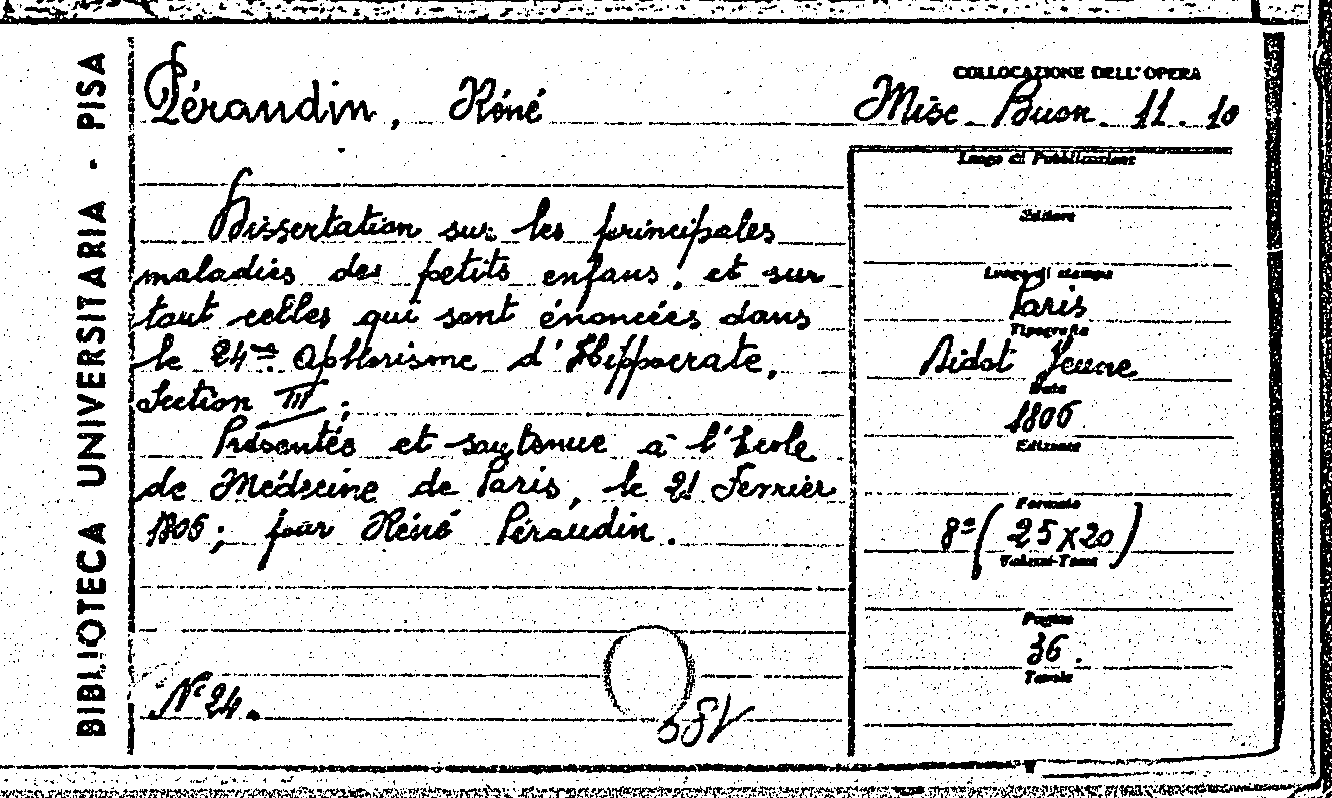 BIBLIOTECA UNIVERSITARIA - PISA
Péraudin, Réné
COLLOCAZIONE DELL'OPERA
Misc. Buon. 11. 10
Dissertation sur les principales
maladies des petits enfans, et sur
tout celles qui sont énoncées dans
le 24me aphorisme d'Hippocrate,
Section III;
Présentée et soutenue à l'Ecole
de Médecine de Paris, le 21 Fevrier
1806; par Réné Péraudin.
N° 24.
Luogo di Pubblicazione
Editore
Luogo di stampa
Paris
Tipografia
Didot Jeune
Data
1806
Edizione
Formato
8° (25x20)
Volumi-Tomi
Pagine
36.
Tavole